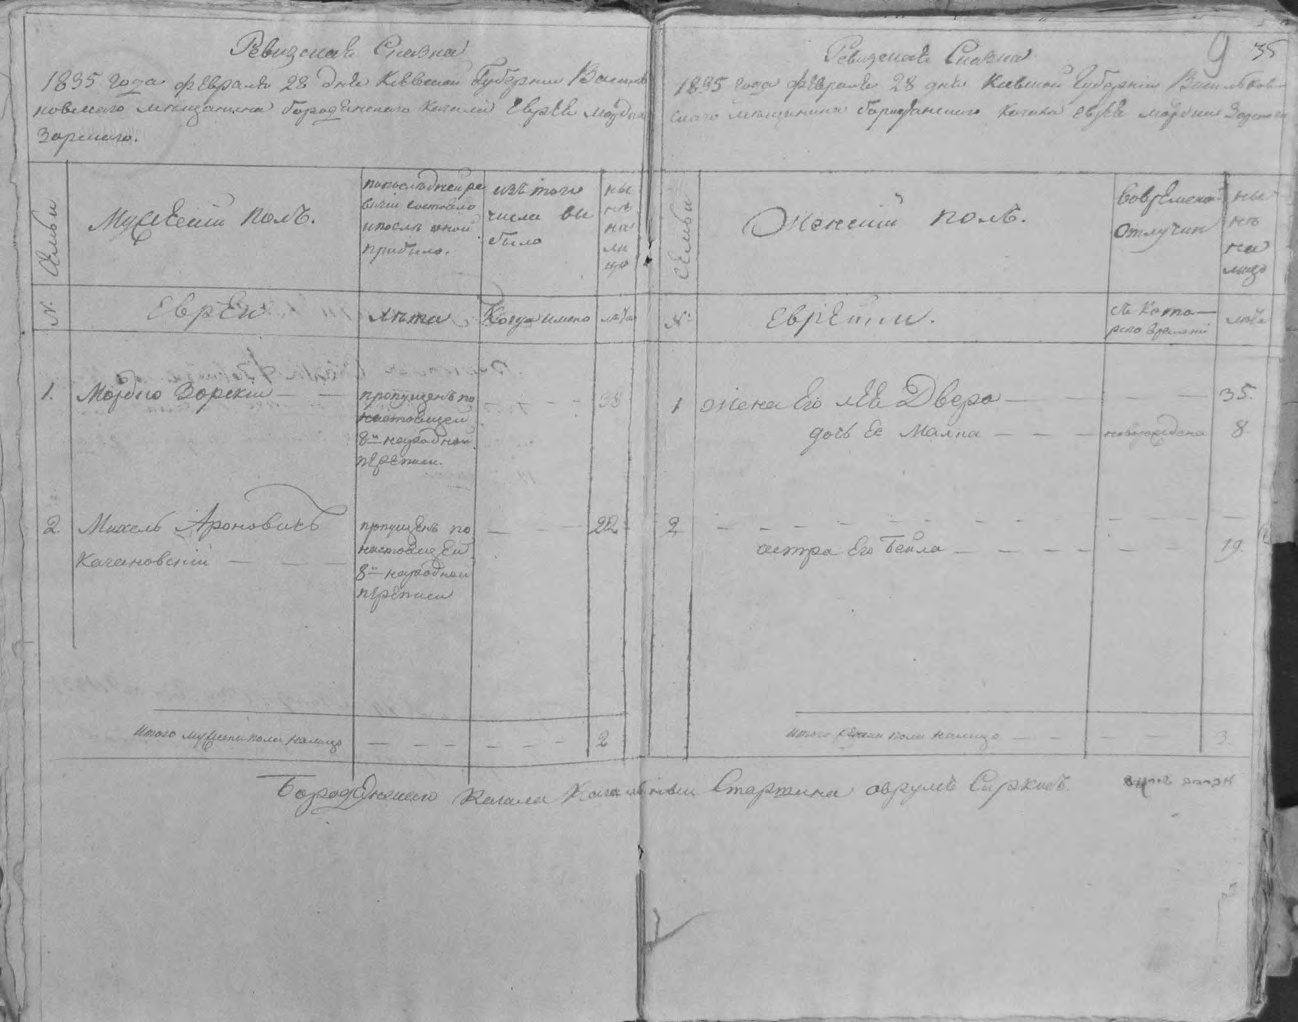 Ревизская Сказка
1835 года февраля 28 дня Киевской Губернии Василь
ковскаго мещанина Бородянскаго Кагала Еврея Мордка
Зорскаго.
Семьи
Мужеский полъ.
попоследней ре
визии состояло
и после оной
прибыло.
изъ того
числа вы
было
ны
не
на
ли
цо
№.
Евреи
лета
Когда имено
лета
1. Мордко Зорский 38
пропущенъ по
настоящей
8й народной
переписи.
2 Михель Ароновичъ
Качановский 22
пропущенъ по
настоящей
8й народной
переписи
Итого мужеска пола налицо 2
9 35
Ревизская Сказка
1835 года февраля 28 дня Киевской Губернии Васильков-
скаго мещанина Бородянскаго Кагала Еврея Мордка
Семьи
Женский полъ.
вовременной
отлучке
ны
не
на
лицо
№
Еврейки.
съ кото-
лета
1 Жена Его Двера 35
дочь ее Малка 8
2
сестра Его Бейла 19
Итого женска пола налицо 3
Бородянскаго Кагала Кагальный Старшина Аврумъ Сиркисъ.